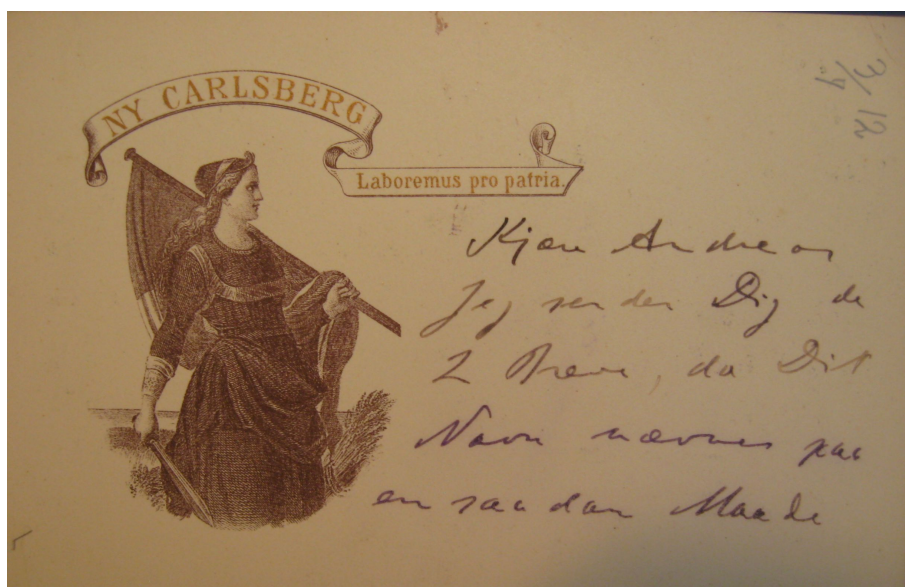 NY CARLSBERG
Laboremus pro patria.
3/4 12
Kjære Andreas
Jeg sender Dig de
2 Breve, da Dit
Navn nævnes paa
en saadan Maade